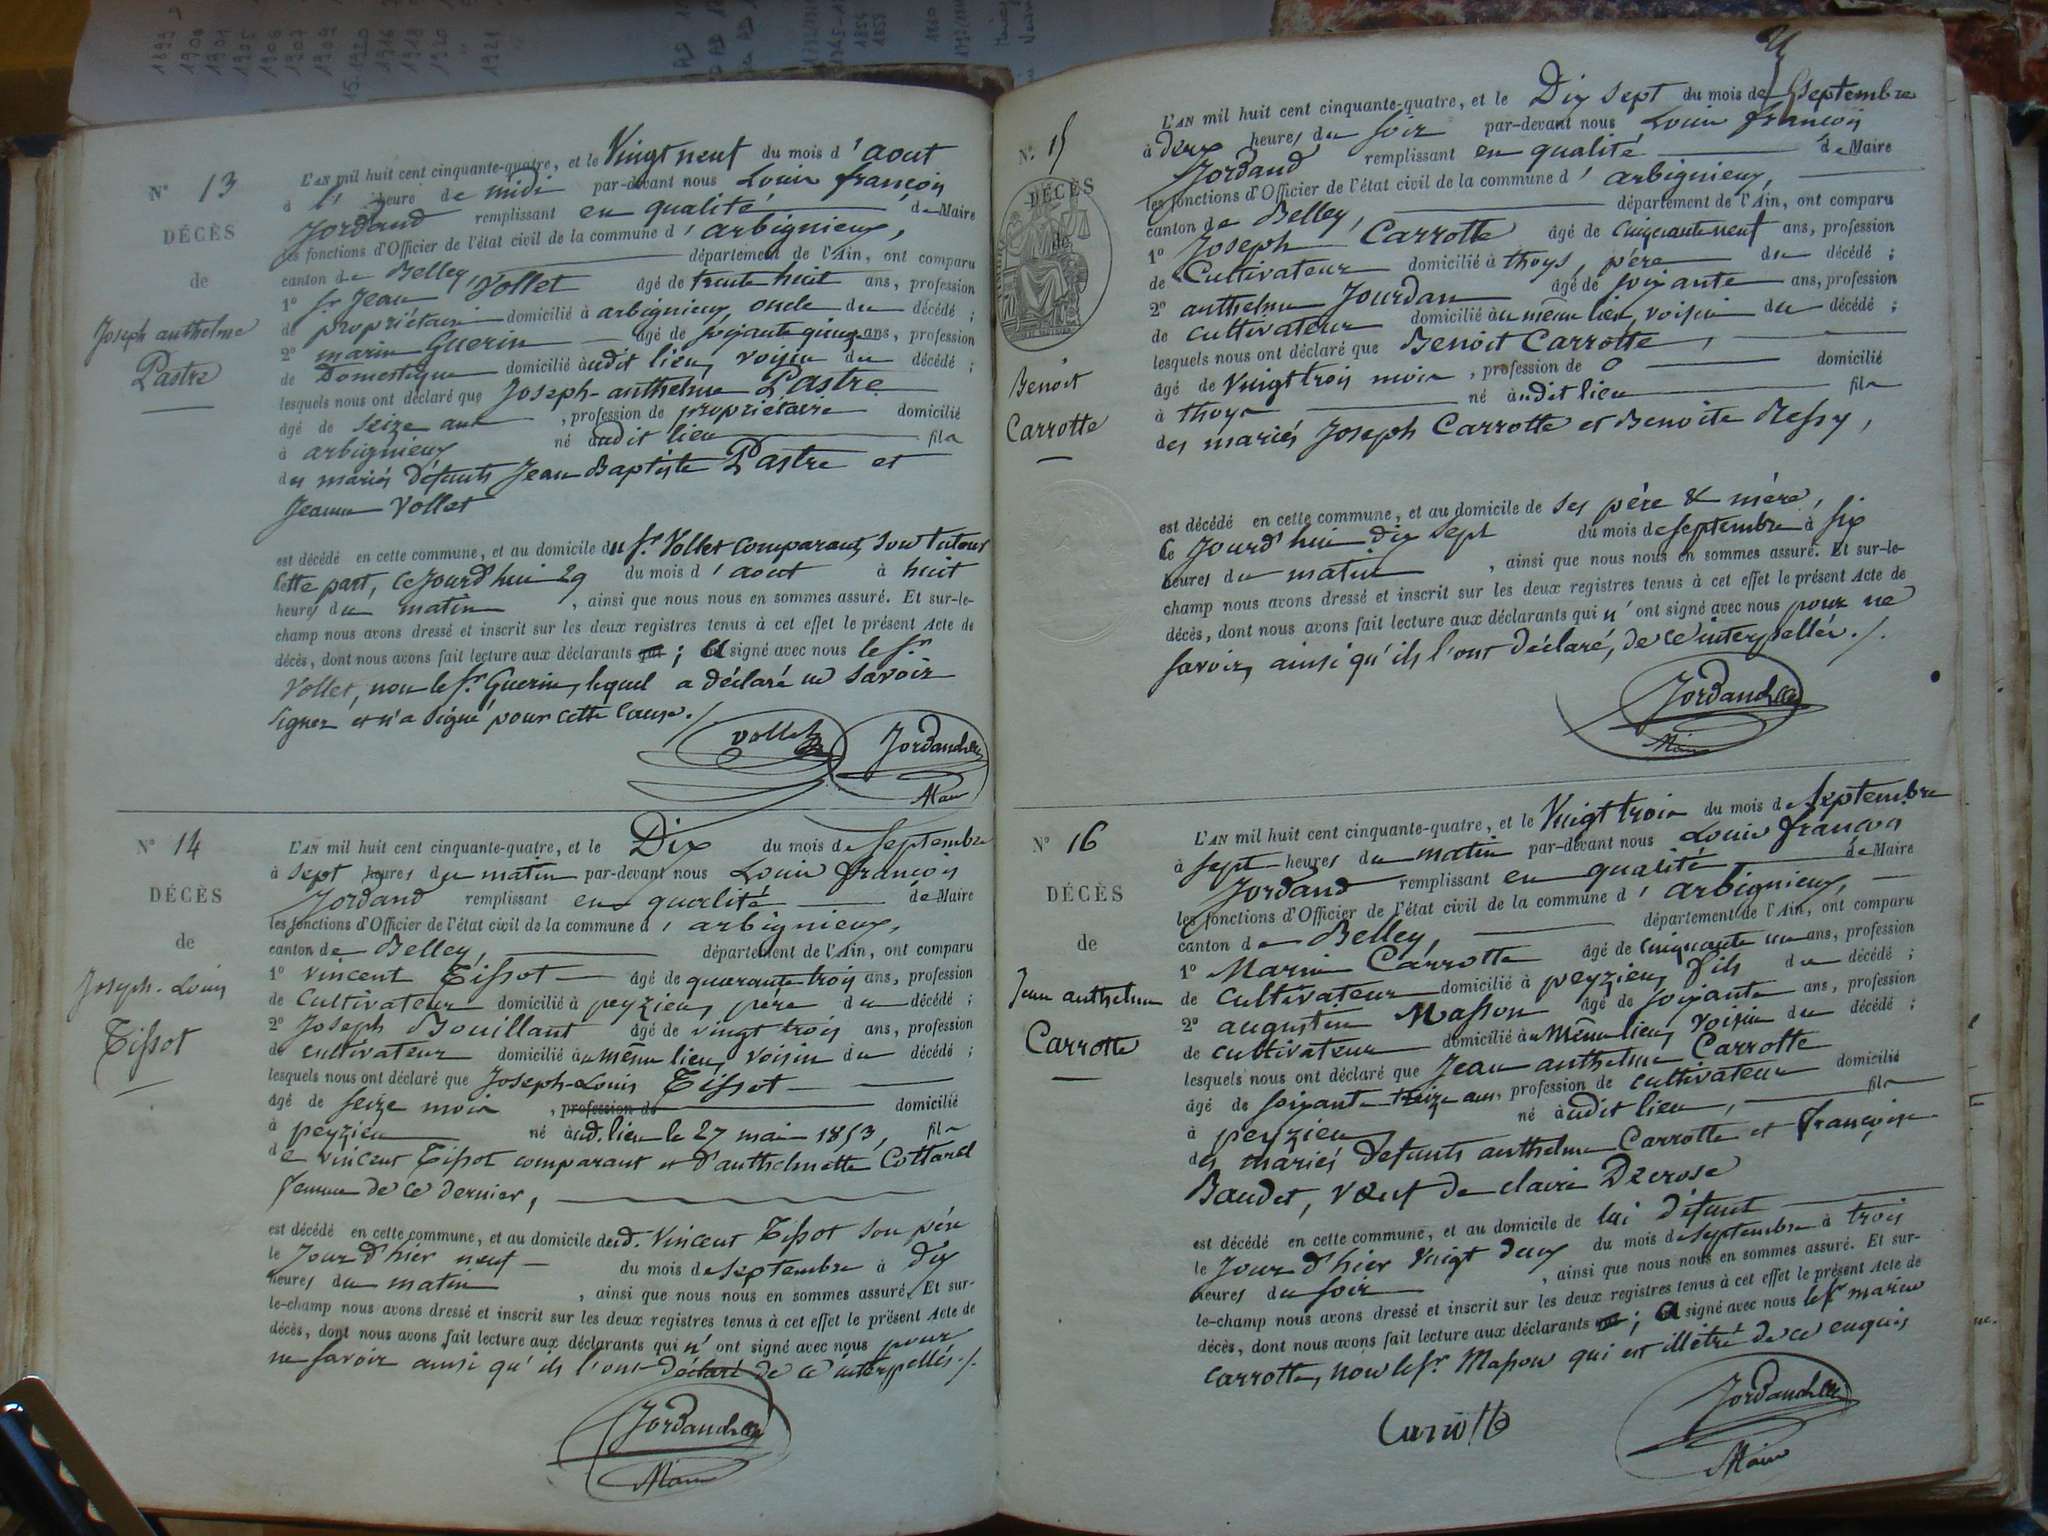 N° 13
DÉCÈS
de
Joseph anthelme
Pastre
L'AN mil huit cent cinquante-quatre, et le Vingt neuf du mois d'aout
à l' heure de midi par-devant nous Louis françois
Jordand remplissant en qualité de Maire
les fonctions d'Officier de l'état civil de la commune d'arbignieux,
canton de Belley, département de l'Ain, ont comparu
1° Sr Jean Vollet âgé de trente huit ans, profession
de propriétaire domicilié à arbignieux, oncle du décédé ;
2° marin Guerin âgé de soixante quinze ans, profession
de Domestique domicilié audit lieu, voisin du décédé ;
lesquels nous ont déclaré que Joseph-anthelme Pastre
âgé de seize ans , profession de propriétaire domicilié
à arbignieux né audit lieu fils
des mariés défunts Jean Baptiste Pastre et
Jeanne Vollet
est décédé en cette commune, et au domicile du Sr Vollet comparant, son tuteur
cette part, ce jourd'hui 29 du mois d'aout à huit
heures du matin , ainsi que nous nous en sommes assuré. Et sur-le-
champ nous avons dressé et inscrit sur les deux registres tenus à cet effet le présent Acte de
décès, dont nous avons fait lecture aux déclarants qui ; a signé avec nous le Sr
Vollet, non le Sr Guerin, lequel a déclaré ne savoir
signer et n'a signé pour cette cause ./.
Vollet Jordand
Maire
N° 14
DÉCÈS
de
Joseph-Louis
Tissot
L'AN mil huit cent cinquante-quatre, et le Dix du mois de Septembre
à sept heures du matin par-devant nous Louis françois
Jordand remplissant en qualité de Maire
les fonctions d'Officier de l'état civil de la commune d'arbignieux,
canton de Belley, département de l'Ain, ont comparu
1° Vincent Tissot âgé de quarante trois ans, profession
de Cultivateur domicilié à peyzieu, père du décédé ;
2° Joseph Bouillant âgé de vingt trois ans, profession
de cultivateur domicilié au même lieu, voisin du décédé ;
lesquels nous ont déclaré que Joseph-Louis Tissot
âgé de seize mois , profession de domicilié
à peyzieu né aud. lieu le 27 mai 1853, fils
de vincent Tissot comparant et d'anthelmette Cottarel
femme de ce dernier,
est décédé en cette commune, et au domicile dud. Vincent Tissot son père
le Jour d'hier neuf du mois de septembre à dix
heures du matin , ainsi que nous nous en sommes assuré. Et sur-
le-champ nous avons dressé et inscrit sur les deux registres tenus à cet effet le présent Acte de
décès, dont nous avons fait lecture aux déclarants qui n'ont signé avec nous pour
ne savoir ainsi qu'ils l'ont déclaré de ce interpellés ./.
Jordand
Maire
N° 15
DÉCÈS
de
Benoit
Carrotte
L'AN mil huit cent cinquante-quatre, et le Dix sept du mois de Septembre
à deux heures du soir par-devant nous Louis françois
Jordand remplissant en qualité de Maire
les fonctions d'Officier de l'état civil de la commune d'arbignieux,
canton de Belley, département de l'Ain, ont comparu
1° Joseph Carrotte âgé de cinquante neuf ans, profession
de Cultivateur domicilié à thoys, père du décédé ;
2° anthelme Jourdan âgé de soixante ans, profession
de cultivateur domicilié au même lieu, voisin du décédé ;
lesquels nous ont déclaré que Benoit Carrotte,
âgé de vingt trois mois , profession de 0 domicilié
à thoys né audit lieu fils
des mariés Joseph Carrotte et Benoite Bessy,
est décédé en cette commune, et au domicile de ses père & mère,
le Jourd'hui dix sept du mois de septembre à six
heures du matin , ainsi que nous nous en sommes assuré. Et sur-le-
champ nous avons dressé et inscrit sur les deux registres tenus à cet effet le présent Acte de
décès, dont nous avons fait lecture aux déclarants qui n'ont signé avec nous pour ne
savoir, ainsi qu'ils l'ont déclaré, de ce interpellés ./.
Jordand
Maire
N° 16
DÉCÈS
de
Jean anthelme
Carrotte
L'AN mil huit cent cinquante-quatre, et le Vingt trois du mois de Septembre
à sept heures du matin par-devant nous Louis françois
Jordand remplissant en qualité de Maire
les fonctions d'Officier de l'état civil de la commune d'arbignieux,
canton de Belley, département de l'Ain, ont comparu
1° Marin Carrotte âgé de cinquante un ans, profession
de cultivateur domicilié à peyzieu, fils du décédé ;
2° augustin Masson âgé de soixante ans, profession
de cultivateur domicilié au même lieu, voisin du décédé ;
lesquels nous ont déclaré que Jean anthelme Carrotte
âgé de soixante treize ans, profession de cultivateur domicilié
à peyzieu né audit lieu, fils
des mariés défunts anthelme Carrotte et françoise
Baudet, veuf de claire Decrose
est décédé en cette commune, et au domicile de lui défunt
le Jour d'hier vingt deux du mois de septembre à trois
heures du soir , ainsi que nous nous en sommes assuré. Et sur-
le-champ nous avons dressé et inscrit sur les deux registres tenus à cet effet le présent Acte de
décès, dont nous avons fait lecture aux déclarants ; a signé avec nous le Sr marin
carrotte, non le Sr Masson qui est illétré de ce enquis
Carrotte Jordand
Maire